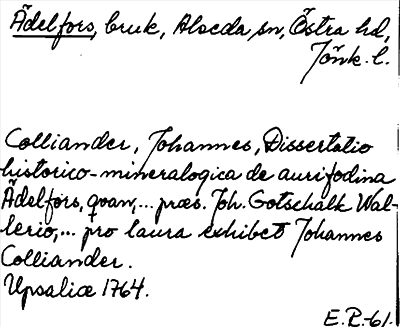 Ädelfors, bruk, Alseda sn, Östra hd,
Jönk. l.
Colliander, Johannes, Dissertatio
historico-mineralogica de aurifodina
Ädelfors, qvan,... præs. Joh. Gotschalk Wal-
lerio,... pro laura exhibet Johannes
Colliander.
Upsaliæ 1764.
E.P.-61.